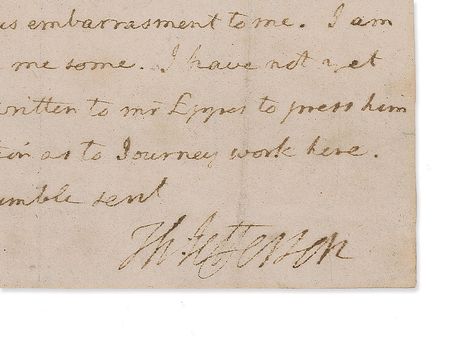 us embarrasment to me. I am
me some. I have not yet
written to mr Eppes to press him
tion as to Journey work here.
umble servt
Th Jefferson